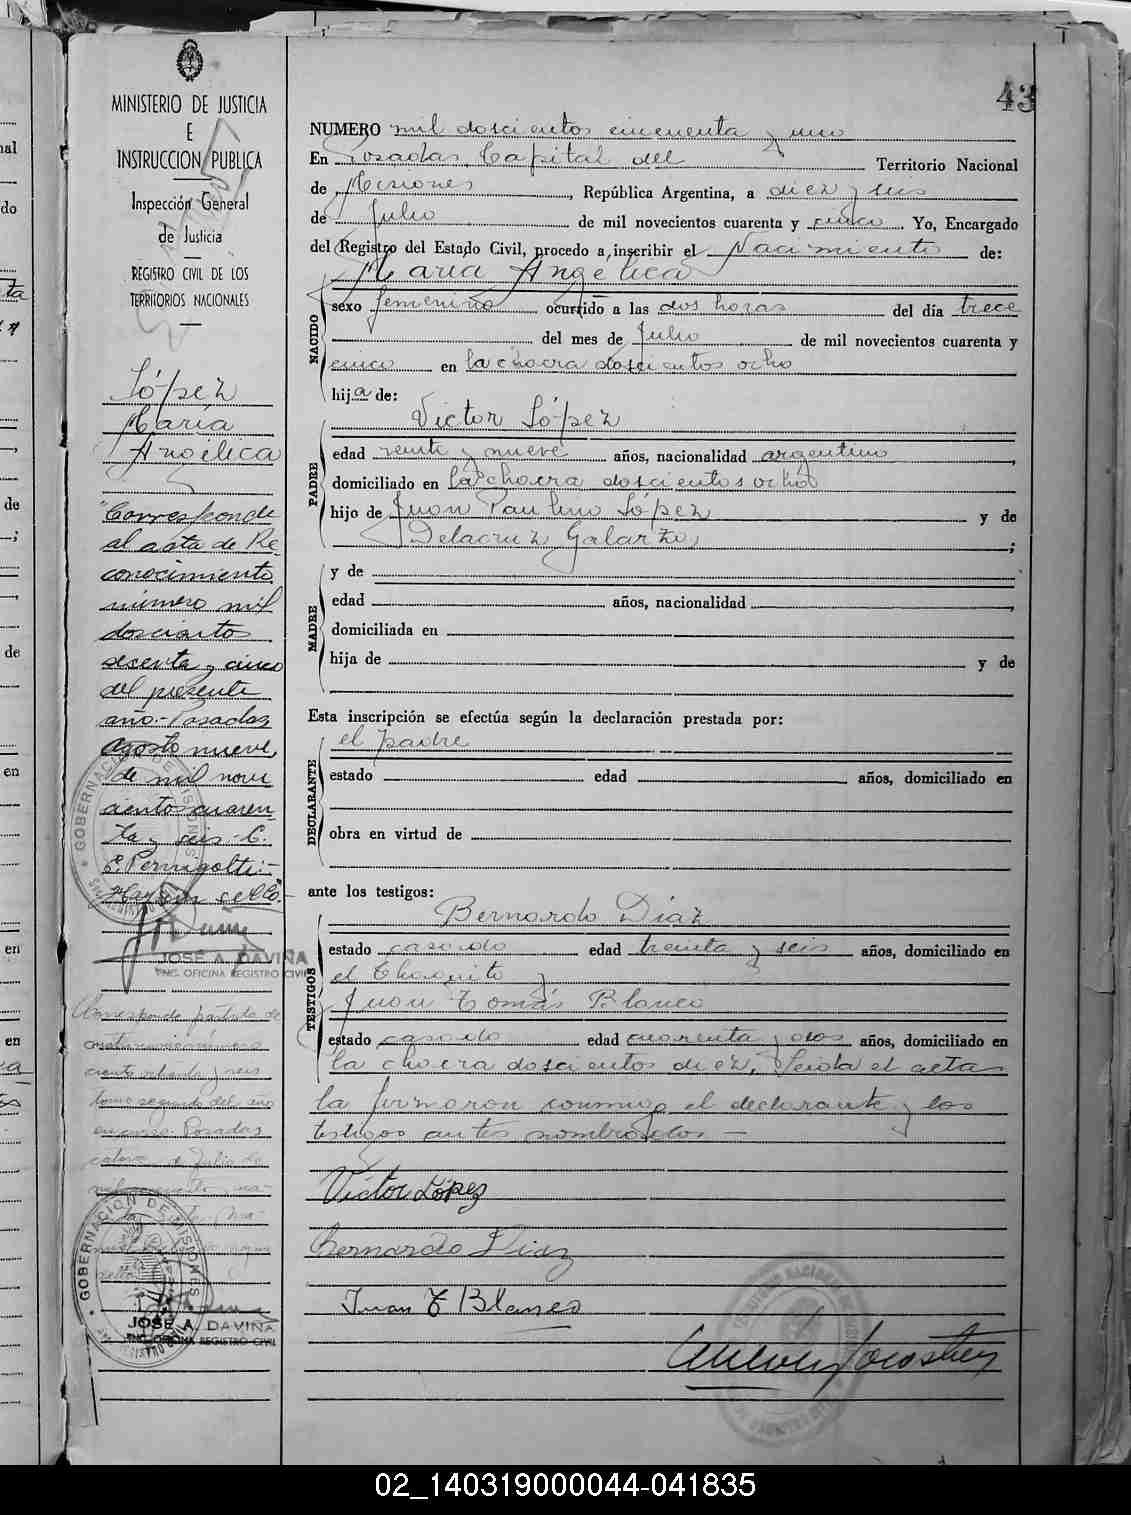 43
MINISTERIO DE JUSTICIA
E
INSTRUCCION PUBLICA
Inspección General
de Justicia
REGISTRO CIVIL DE LOS
TERRITORIOS NACIONALES
López
María
Angélica
"Corresponde
al acta de Re
conocimiento
número mil
doscientos
sesenta y cinco
del presente
año.- Posadas
Agosto nueve,
de mil nove
cientos cuaren
ta y seis- C.
E. Pernigotti.-
Hay un sello."
JOSÉ A. DAVIÑA
ENC. OFICINA REGISTRO CIVIL
Corresponde partida de
ciento ochenta y seis
tomo segundo del año
en curso. Posadas
de Julio de
JOSÉ A. DAVIÑA
ENC. OFICINA REGISTRO CIVIL
GOBERNACION DE MISIONES
NUMERO mil doscientos cincuenta y uno
En Posadas, Capital del Territorio Nacional
de Misiones, República Argentina, a diez y seis
de Julio de mil novecientos cuarenta y cinco. Yo, Encargado
del Registro del Estado Civil, procedo a inscribir el Nacimiento de:
María Angélica
NACIDO
sexo femenino ocurrido a las dos horas del día trece
del mes de Julio de mil novecientos cuarenta y
cinco en la chacra doscientos ocho
hija de:
Victor López
PADRE
edad veinte y nueve años, nacionalidad argentino,
domiciliado en la chacra doscientos ocho
hijo de Juan Paulino López y de
Delacruz Galarza;
MADRE
y de
edad años, nacionalidad,
domiciliada en
hija de y de
Esta inscripción se efectúa según la declaración prestada por:
el padre
DECLARANTE
estado edad años, domiciliado en
obra en virtud de
ante los testigos:
Bernardo Diaz
TESTIGOS
estado casado edad treinta y seis años, domiciliado en
el Chaquito y
Juan Tomás Blanco
estado casado edad cuarenta y dos años, domiciliado en
la chacra doscientos diez. Leída el acta
la firmaron conmigo el declarante y los
testigos antes nombrados —
Victor López
Bernardo Diaz
Juan T Blanco
02_140319000044-041835